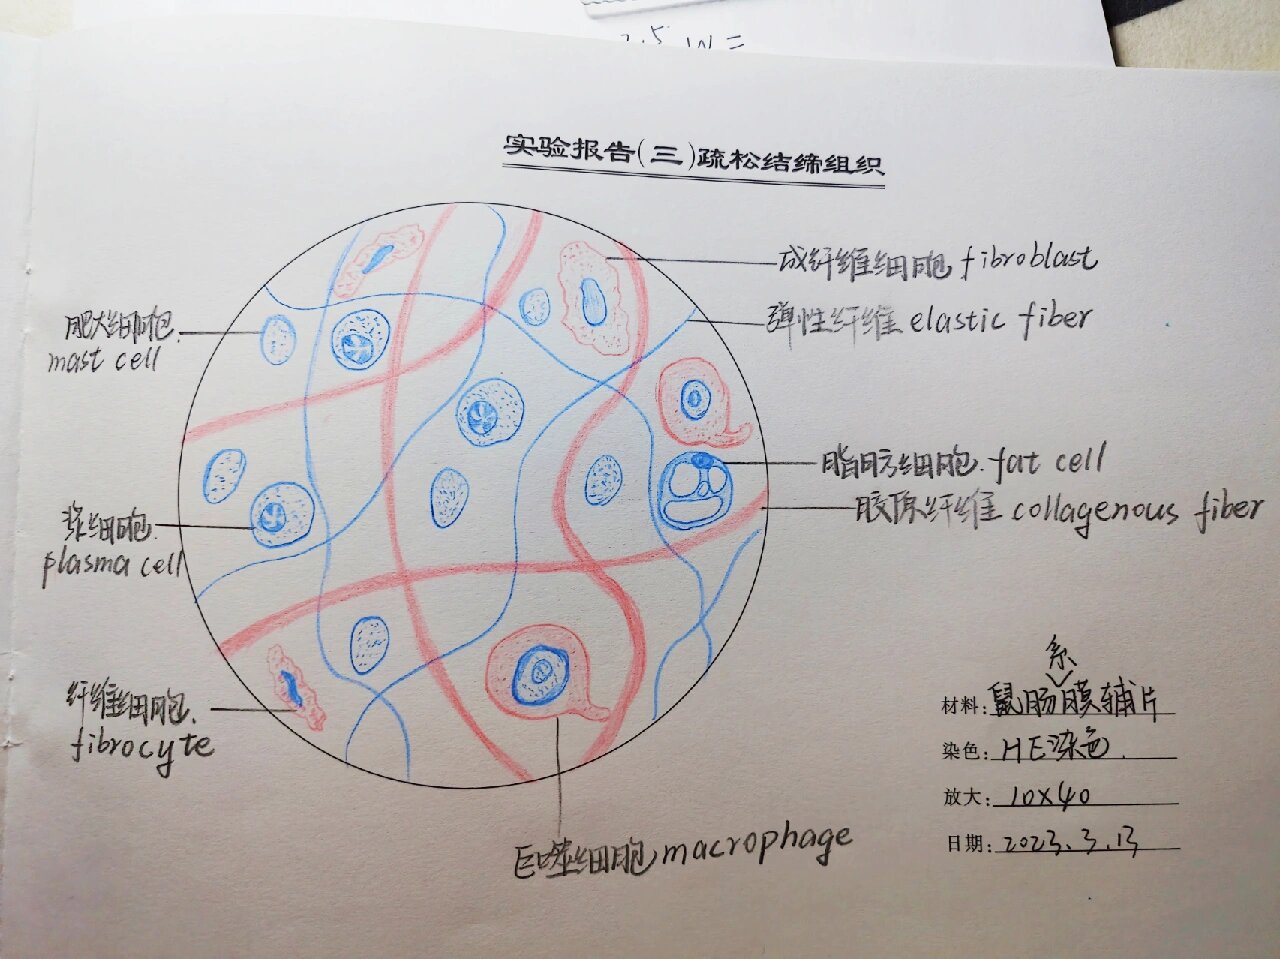 2.5 W =
实验报告(三)疏松结缔组织
成纤维细胞 fibroblast
弹性纤维 elastic fiber
肥大细胞
mast cell
脂肪细胞. fat cell
胶原纤维 collagenous fiber
浆细胞.
plasma cell
纤维细胞.
fibrocyte
巨噬细胞 macrophage
系
材料: 鼠肠膜铺片
染色: HE染色.
放大: 10×40
日期: 2023.3.13